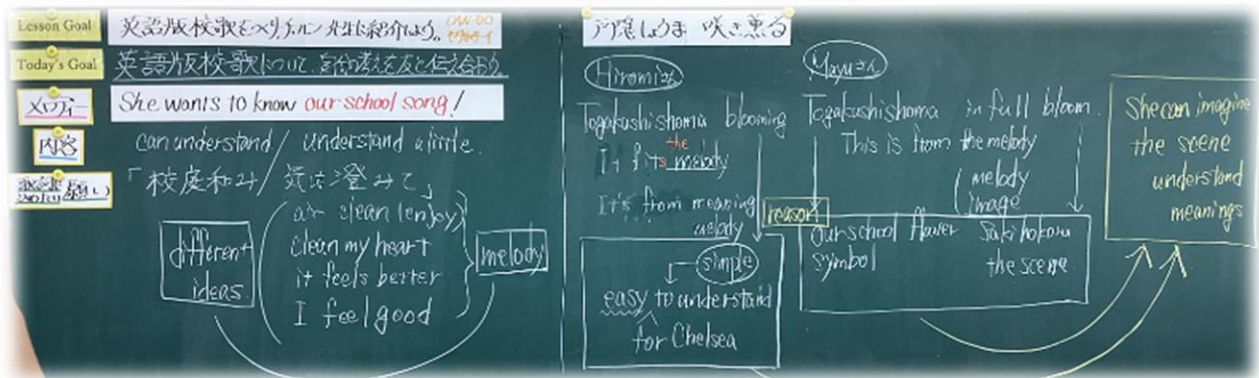 Lesson Goal
英語版校歌をつくり、チェルシー先生に紹介しよう。
Today's Goal
英語版校歌について、自分の考えを友と伝え合おう
メロディー
She wants to know our school song!
内容
can understand / understand a little.
願い
「校庭和み/気は澄みて」
different
ideas
air clean (enjoy)
clean my heart
it feels better
I feel good
melody
戸隠しょうま 咲き薫る
Hiromiさん
Togakushishoma blooming
It fits the melody
It's from meaning
melody
simple
easy to understand
for Chelsea
reason
Mayuさん
Togakushishoma in full bloom.
This is from the melody
melody
image
Our school flower
symbol
Sakihokoru
the scene
She can imagine
the scene
understand
meanings